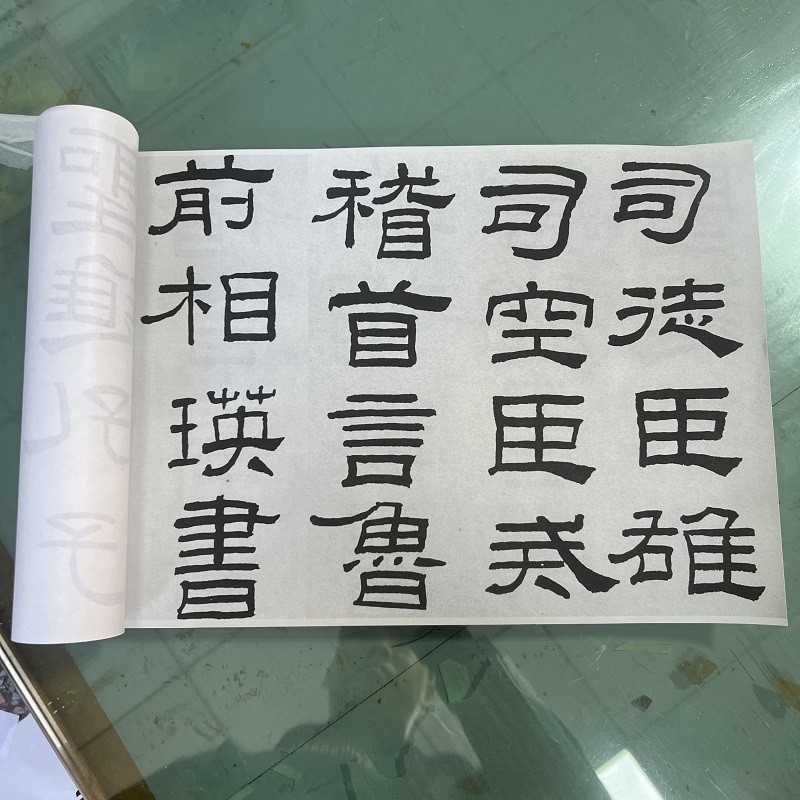 司徒臣雄
司空臣戒
稽首言魯
前相瑛書